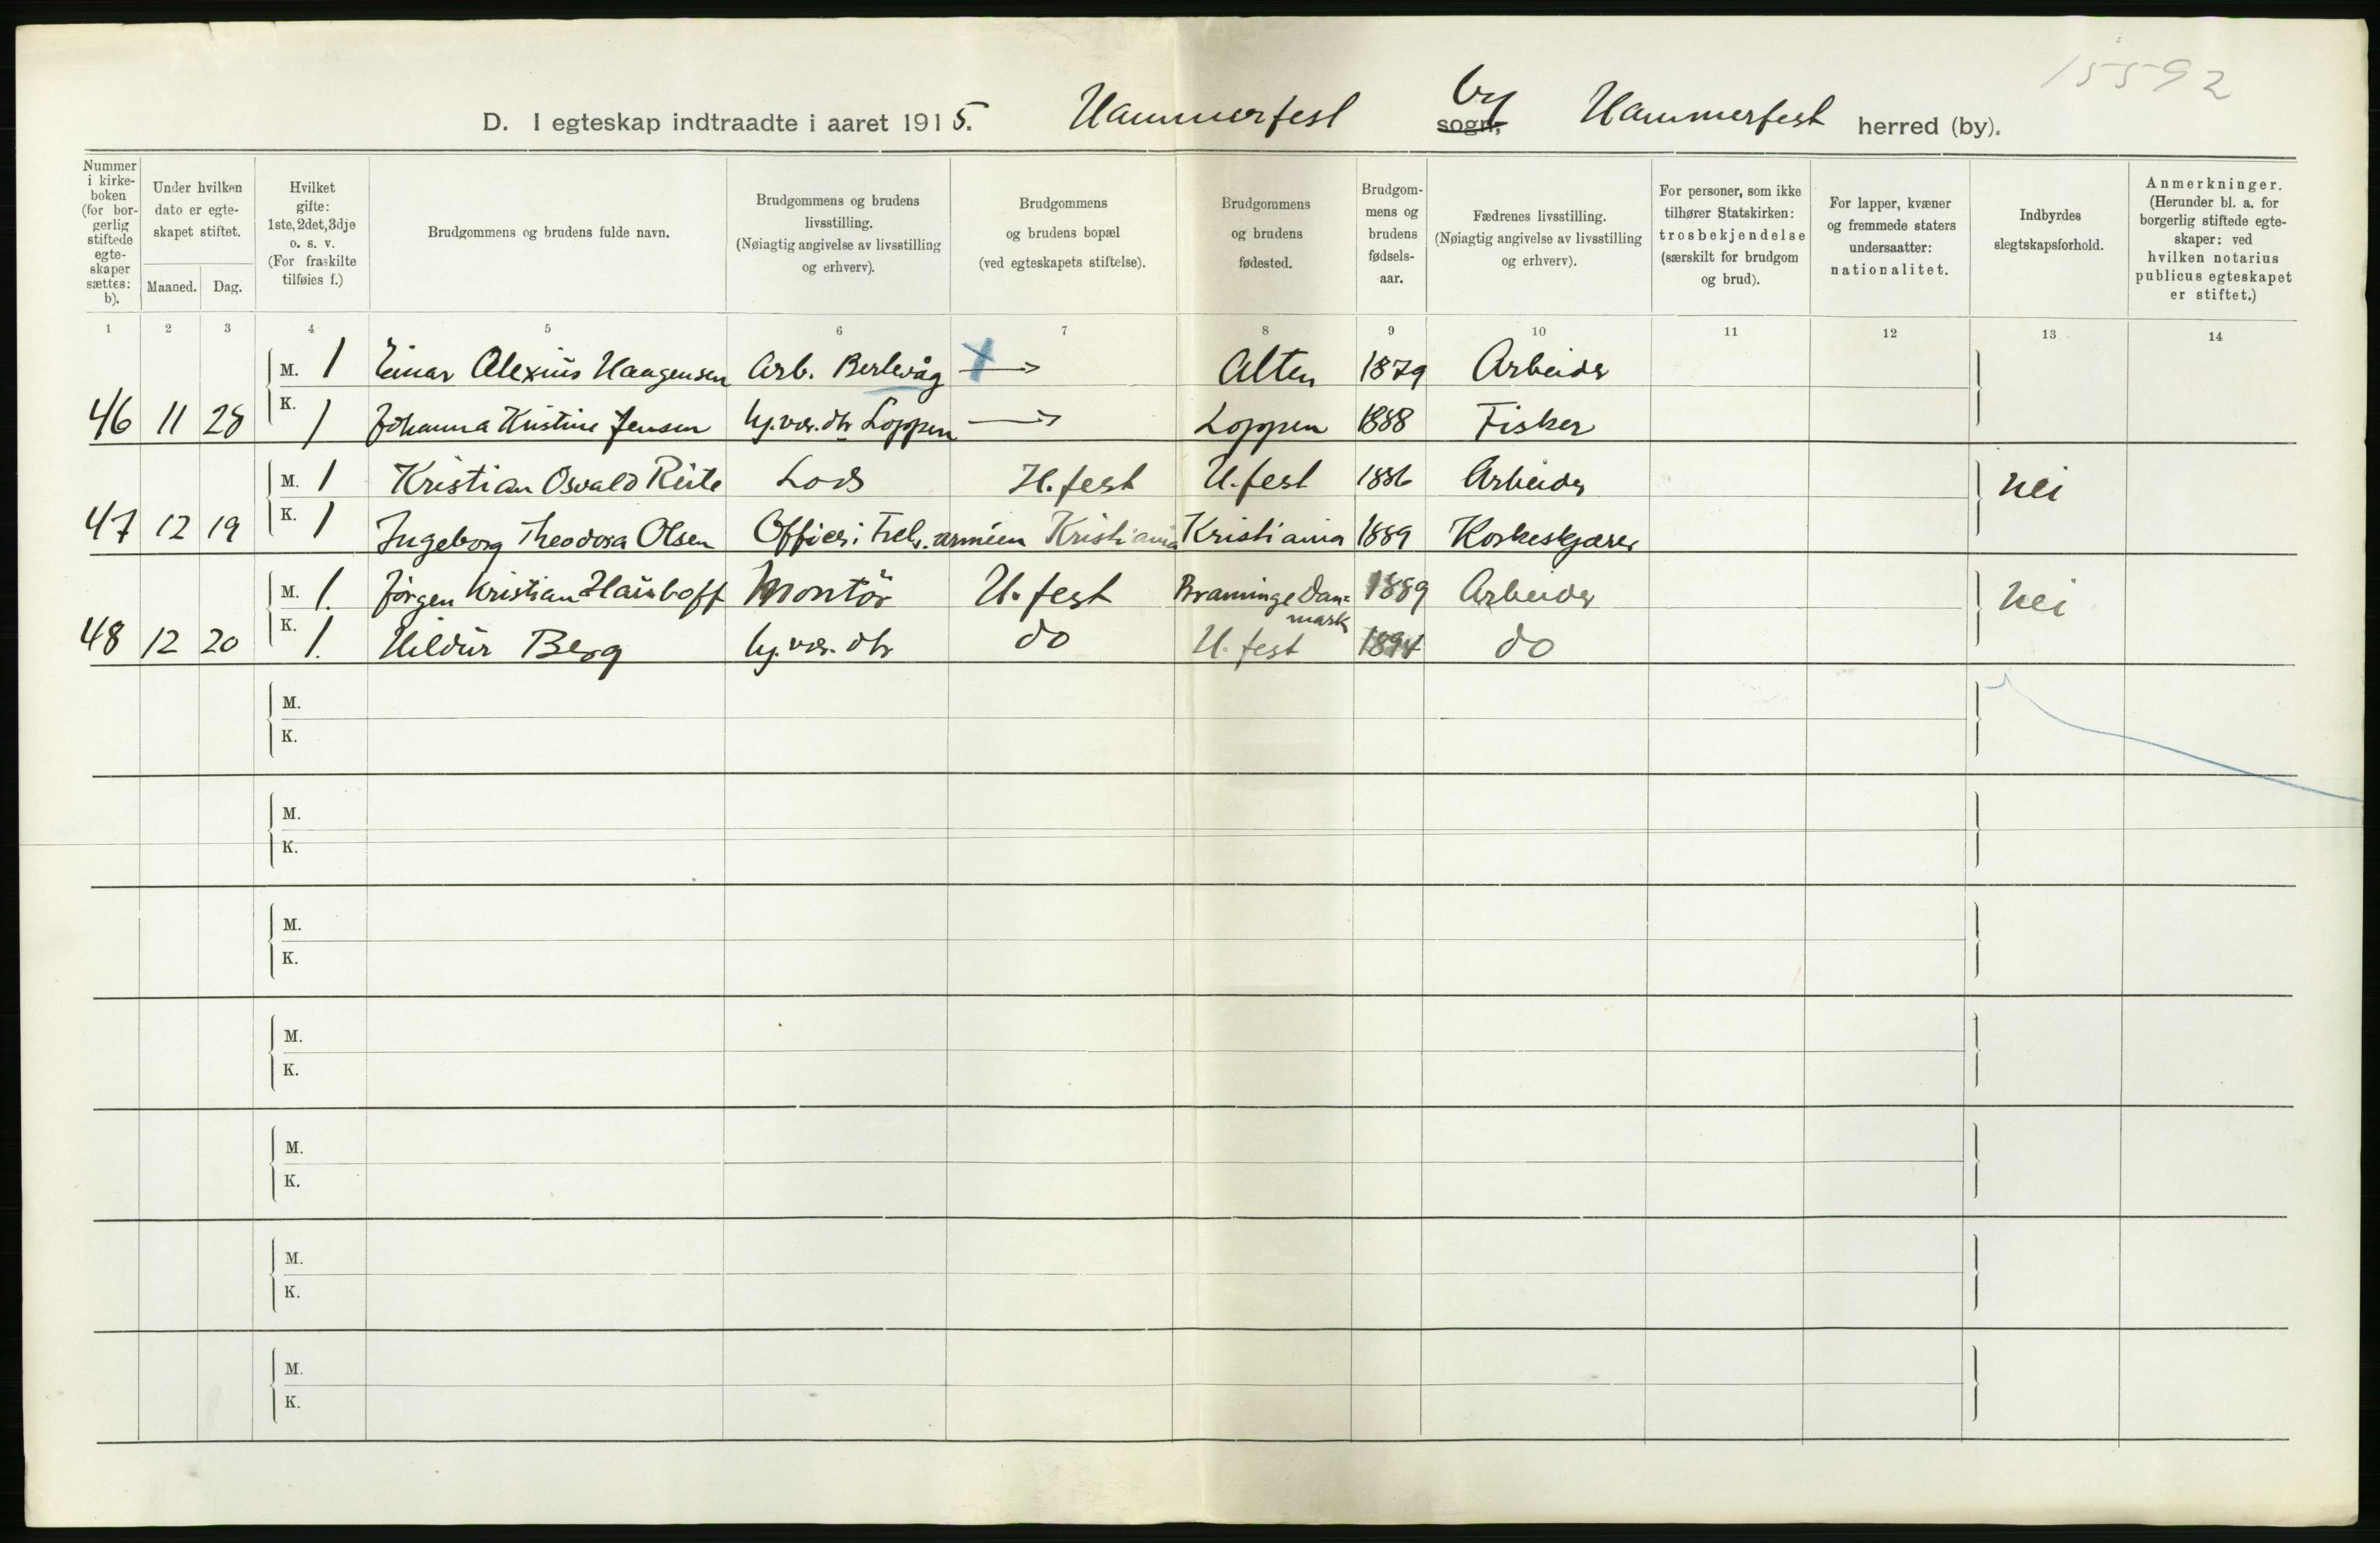 15592
D. I egteskap indtraadte i aaret 1915. Hammerfest by sogn, Hammerfest herred (by).
Nummer i kirke-boken (for bor-gerlig stiftede egte-skaper sættes: b).
Under hvilken dato er egte-skapet stiftet.
Maaned. Dag.
Hvilket gifte: 1ste, 2det, 3dje o. s. v. (For fraskilte tilføies f.)
Brudgommens og brudens fulde navn.
Brudgommens og brudens livsstilling. (Nøiagtig angivelse av livsstilling og erhverv).
Brudgommens og brudens bopæl (ved egteskapets stiftelse).
Brudgommens og brudens fødested.
Brudgom-mens og brudens fødsels-aar.
Fædrenes livsstilling. (Nøiagtig angivelse av livsstilling og erhverv).
For personer, som ikke tilhører Statskirken: trosbekjendelse (særskilt for brudgom og brud).
For lapper, kvæner og fremmede staters undersaatter: nationalitet.
Indbyrdes slegtskapsforhold.
Anmerkninger. (Herunder bl. a. for borgerlig stiftede egte-skaper: ved hvilken notarius publicus egteskapet er stiftet.)
1 2 3 4 5 6 7 8 9 10 11 12 13 14
M. 1 Einar Alexius Haagensen Arb. Berlevåg Alten 1879 Arbeider
46 11 28 K. 1 Johanna Kristine Jensen hj.vær. dtr Loppen Loppen 1888 Fisker
M. 1 Kristian Osvald Lods H.fest H.fest 1886 Arbeider nei
47 12 19 K. 1 Ingeborg Theodora Olsen Officer i Frels.armeen Kristiania Kristiania 1889 Korkeskjærer
M. 1. Jörgen Kristian Montör H.fest Braminge Dan=mark 1889 Arbeider nei
48 12 20 K. 1. Hildur Berg hj.vær. dtr do H.fest 1894 do
M.
K.
M.
K.
M.
K.
M.
K.
M.
K.
M.
K.
M.
K.